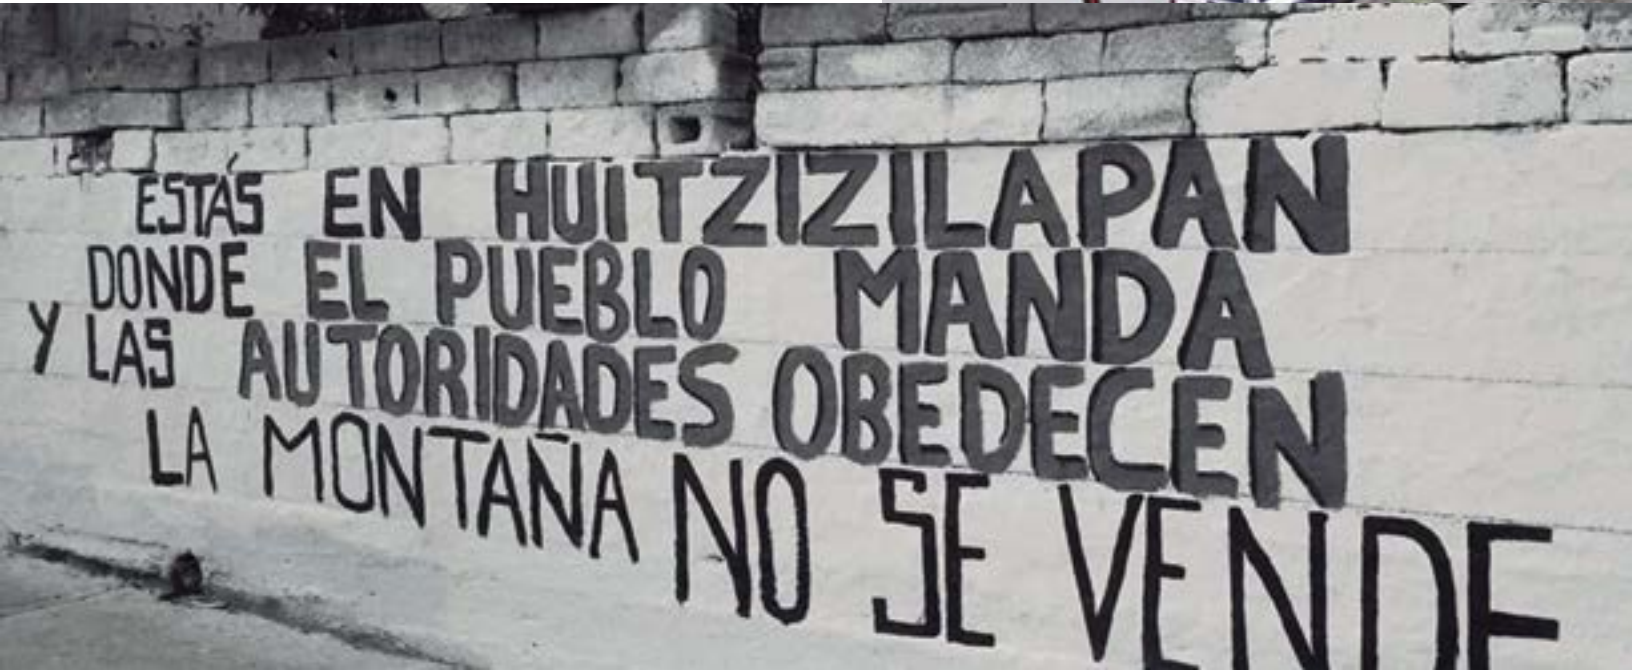 ESTÁS EN HUITZIZILAPAN
DONDE EL PUEBLO MANDA
Y LAS AUTORIDADES OBEDECEN
LA MONTAÑA NO SE VENDE